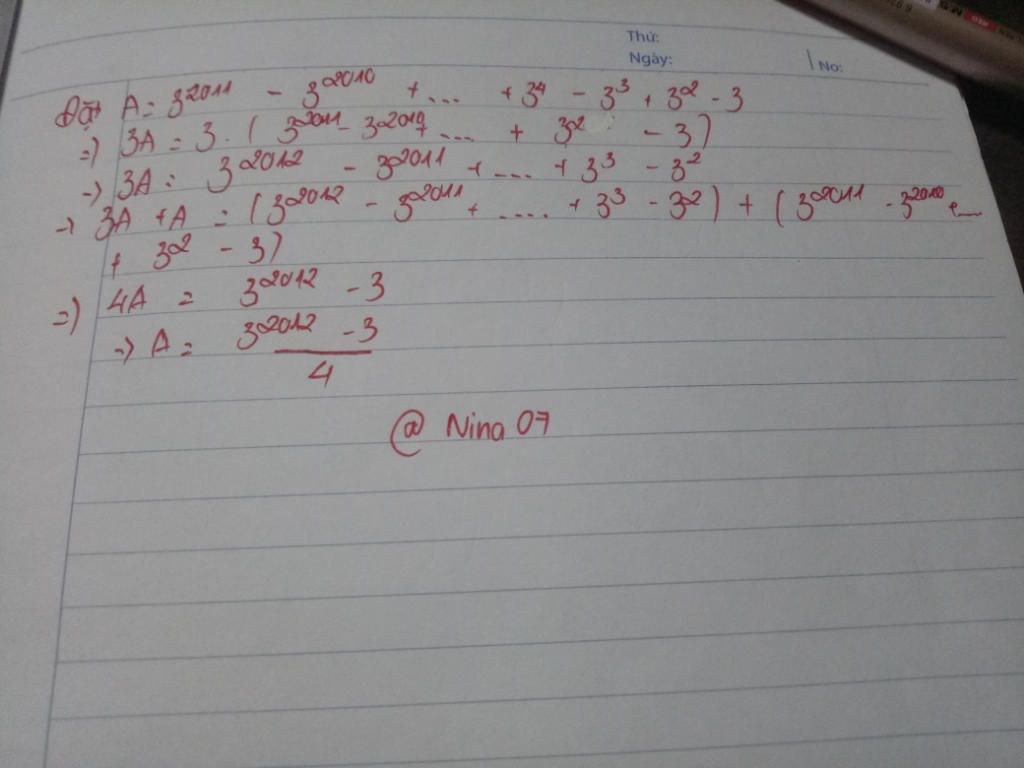 Thứ:
Ngày:
No:
Đặt A = 3^2011 - 3^2010 + ... + 3^4 - 3^3 + 3^2 - 3
=) 3A = 3 . ( 3^2011 - 3^2010 + ... + 3^2 - 3)
-) 3A = 3^2012 - 3^2011 + ... + 3^3 - 3^2
-) 3A + A = (3^2012 - 3^2011 + .... + 3^3 - 3^2) + (3^2011 - 3^2010 + ...
+ 3^2 - 3)
=) 4A = 3^2012 - 3
=) A = 3^2012 - 3
4
@ Nina 07